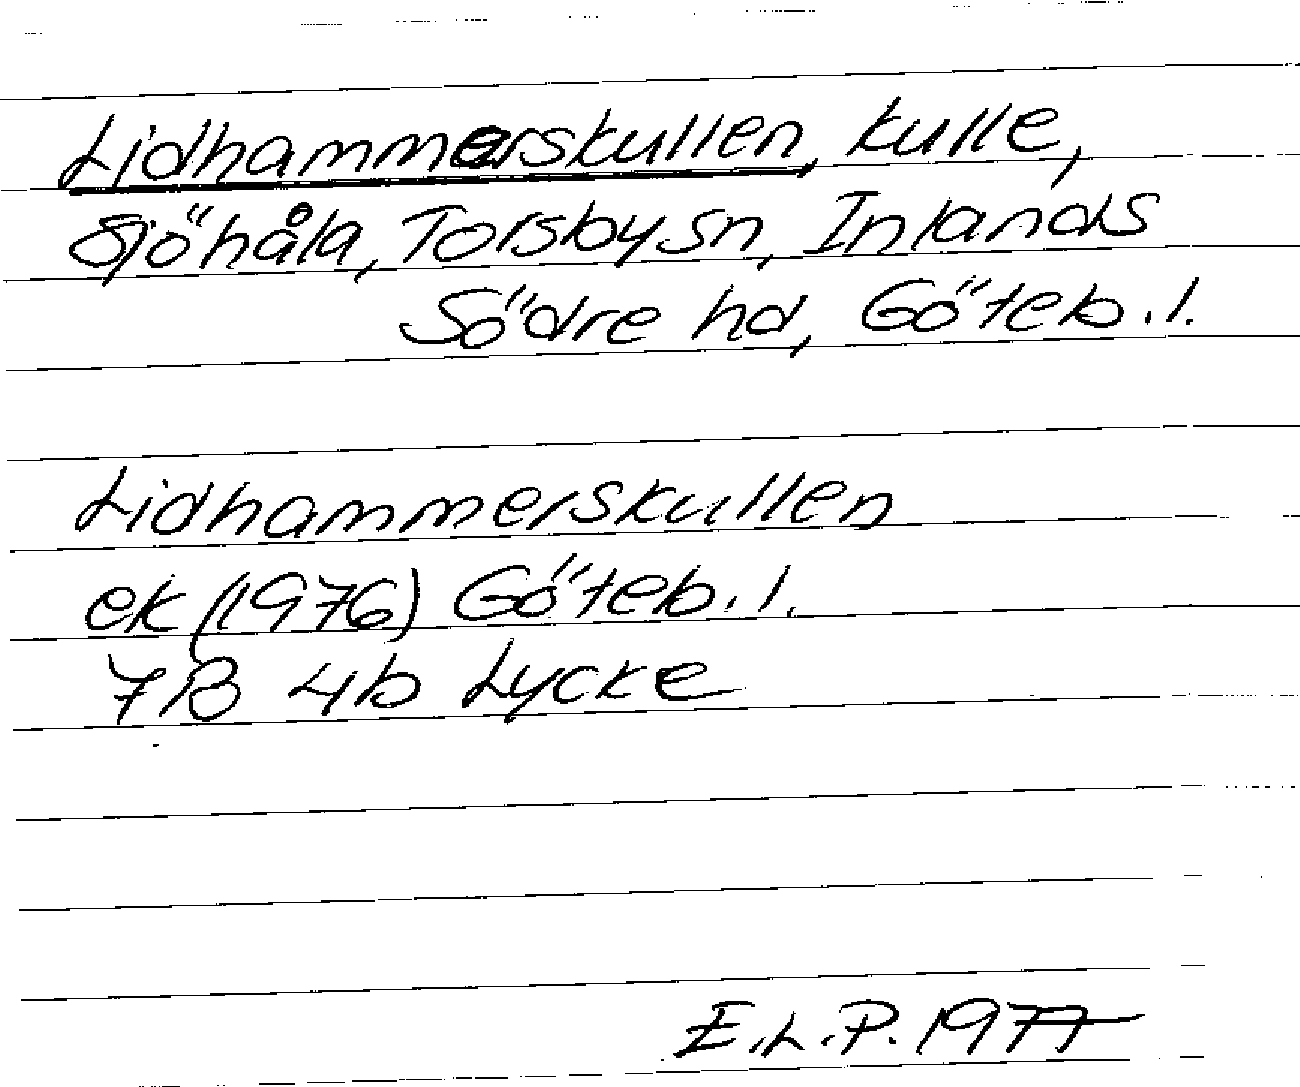 Lidhammerskullen, kulle,
Sjöhåla, Torsby sn, Inlands
Södre hd, Göteb.l.
Lidhammerskullen
ek (1976) Göteb.l.
7B 4b Lycke
E.L.P. 1977